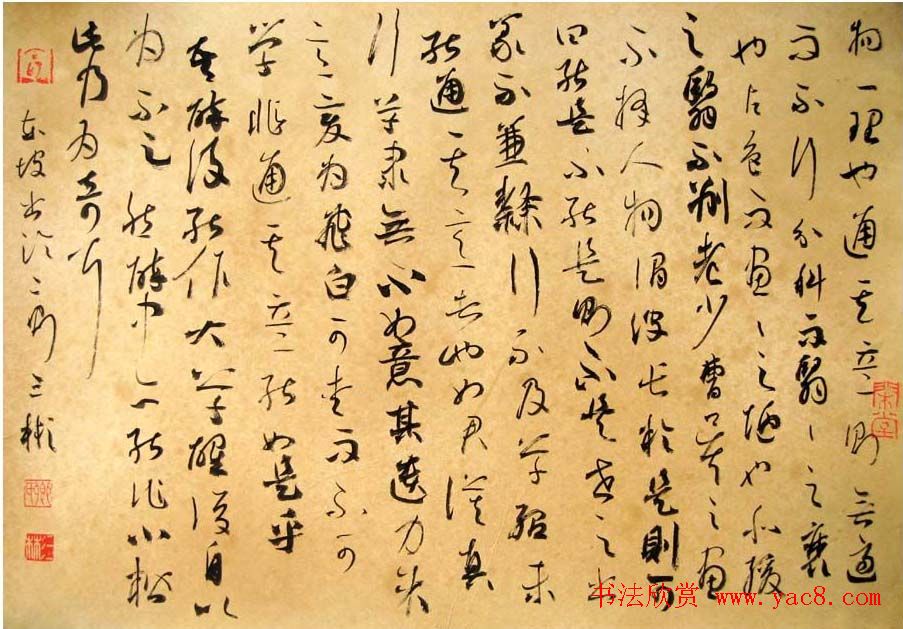 物一理也通其意則無適
而不可分科而醫〻之衰
也占色而畫〻之陋也和緩
之醫不別老少曹吳之畫
不擇人物謂彼長於是則可
曰能是不能是則不可世之書
篆不兼隸行不及草殆未
能通其意者也如君謨真
行草隸無不如意其遺力餘
意變為飛白可愛而不可
學非通其意能如是乎
吾醉後能作大草醒後自以
為不及然醉中亦能作小楷
此乃為奇耳
東坡書論二則 彬
书法欣赏 www.yac8.com